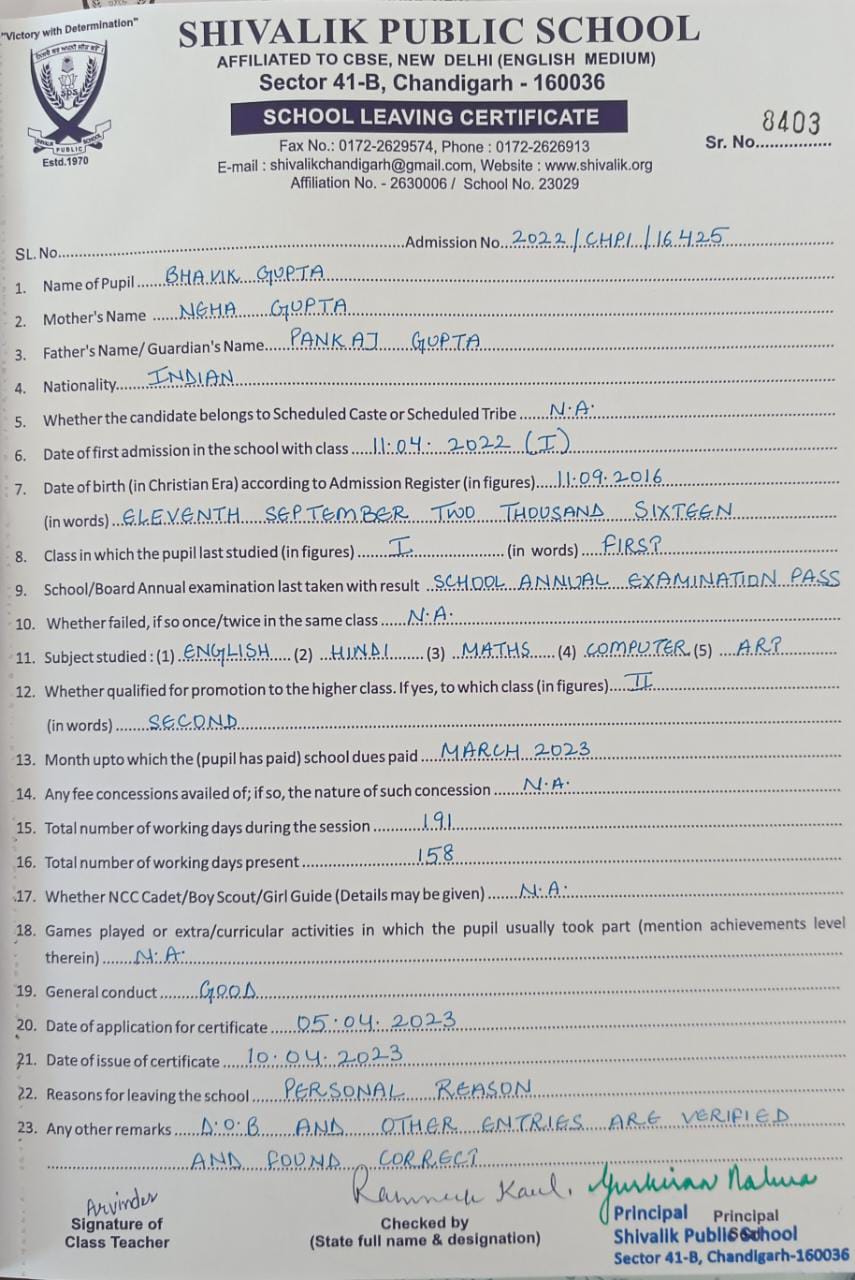 "Victory with Determination"
SHIVALIK PUBLIC SCHOOL
AFFILIATED TO CBSE, NEW DELHI (ENGLISH MEDIUM)
Sector 41-B, Chandigarh - 160036
SCHOOL LEAVING CERTIFICATE
SPS
SHIVALIK PUBLIC SCHOOL
Estd.1970
Fax No.: 0172-2629574, Phone : 0172-2626913
E-mail : shivalikchandigarh@gmail.com, Website : www.shivalik.org
Affiliation No. - 2630006 / School No. 23029
Sr. No. 8403
SL. No. Admission No. 2022/CHPI/16425
1. Name of Pupil BHAVIK GUPTA
2. Mother's Name NEHA GUPTA
3. Father's Name/ Guardian's Name PANKAJ GUPTA
4. Nationality INDIAN
5. Whether the candidate belongs to Scheduled Caste or Scheduled Tribe N.A.
6. Date of first admission in the school with class 11.04.2022 (I)
7. Date of birth (in Christian Era) according to Admission Register (in figures) 11.09.2016
(in words) ELEVENTH SEPTEMBER TWO THOUSAND SIXTEEN
8. Class in which the pupil last studied (in figures) I (in words) FIRST
9. School/Board Annual examination last taken with result SCHOOL ANNUAL EXAMINATION PASS
10. Whether failed, if so once/twice in the same class N.A.
11. Subject studied : (1) ENGLISH (2) HINDI (3) MATHS (4) COMPUTER (5) ART
12. Whether qualified for promotion to the higher class. If yes, to which class (in figures) II
(in words) SECOND
13. Month upto which the (pupil has paid) school dues paid MARCH 2023
14. Any fee concessions availed of; if so, the nature of such concession N.A.
15. Total number of working days during the session 191
16. Total number of working days present 158
17. Whether NCC Cadet/Boy Scout/Girl Guide (Details may be given) N.A.
18. Games played or extra/curricular activities in which the pupil usually took part (mention achievements level
therein) N.A.
19. General conduct GOOD
20. Date of application for certificate 05.04.2023
21. Date of issue of certificate 10.04.2023
22. Reasons for leaving the school PERSONAL REASON
23. Any other remarks D.O.B AND OTHER ENTRIES ARE VERIFIED
AND FOUND CORRECT
Arvinder
Signature of
Class Teacher
Kaul.
Checked by
(State full name & designation)
Principal
Principal
Shivalik Public School
Sector 41-B, Chandigarh-160036